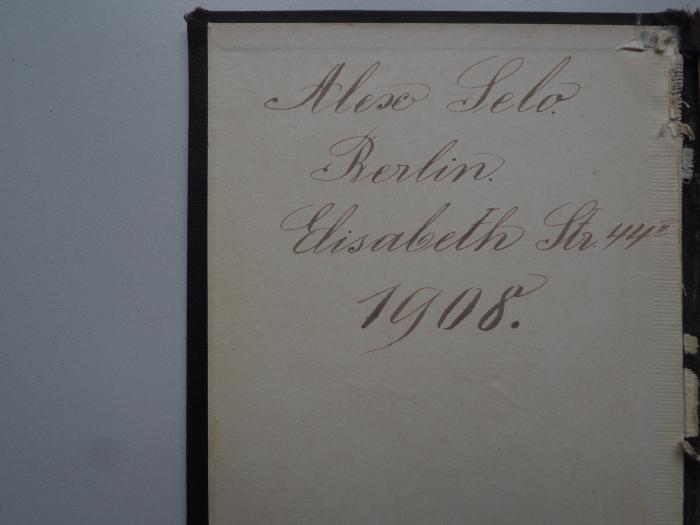 Alex Selo.
Berlin.
Elisabeth Str. 44II
1908.